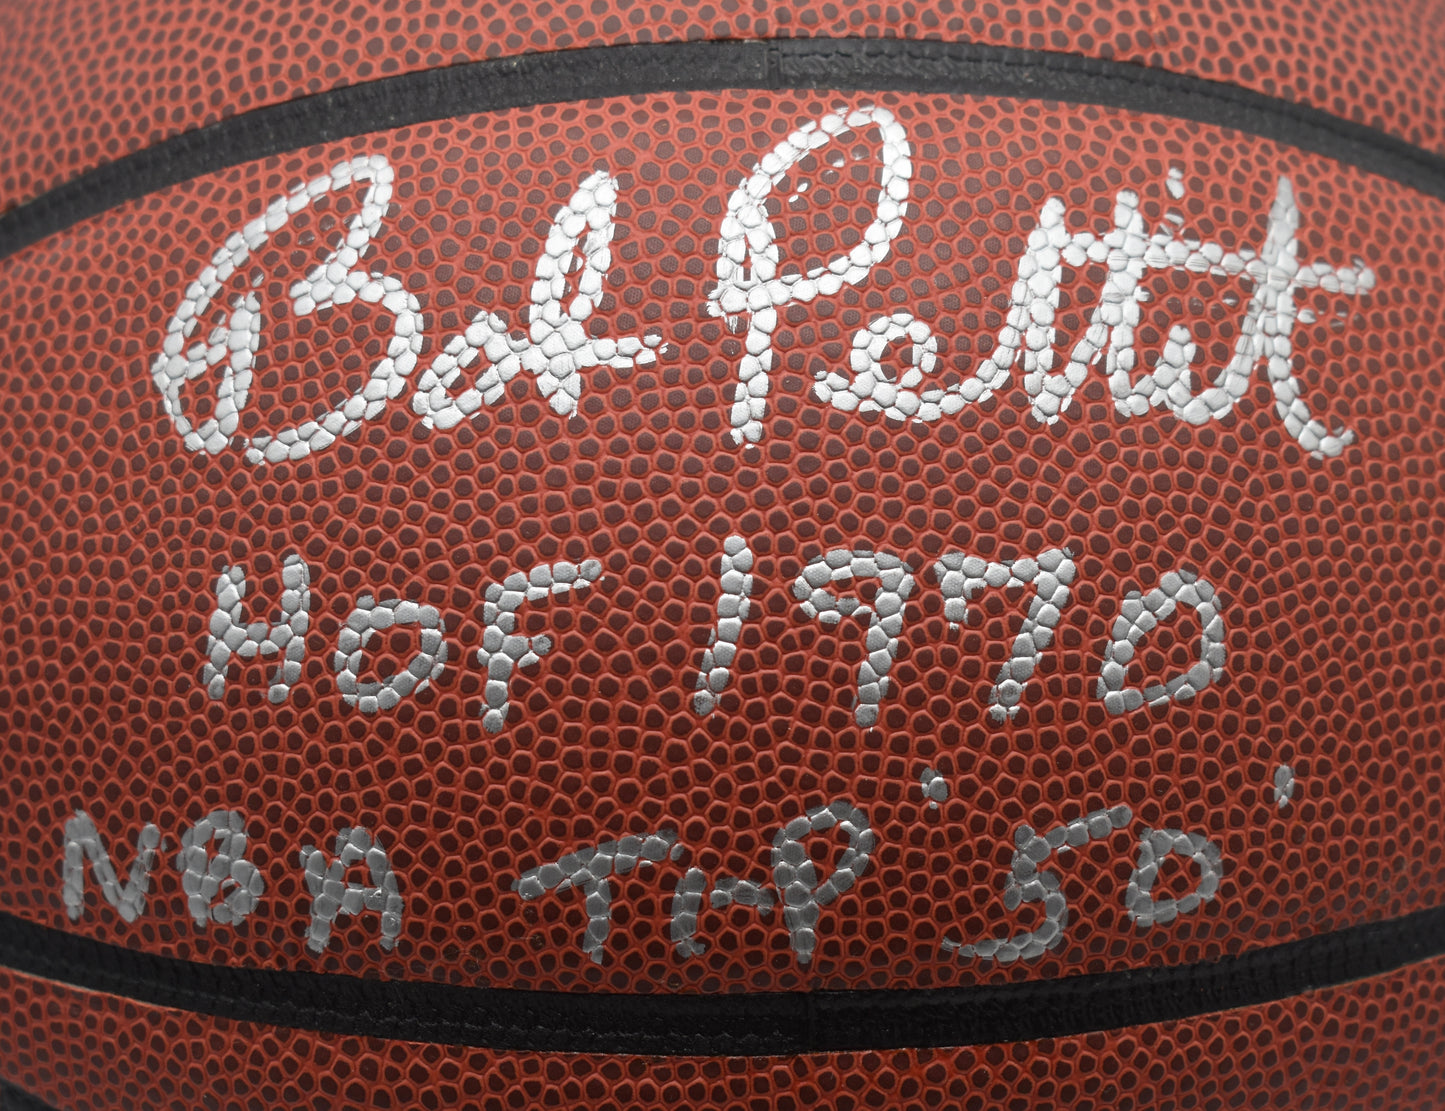 Bob Pettit
HOF 1970
NBA TOP '50'